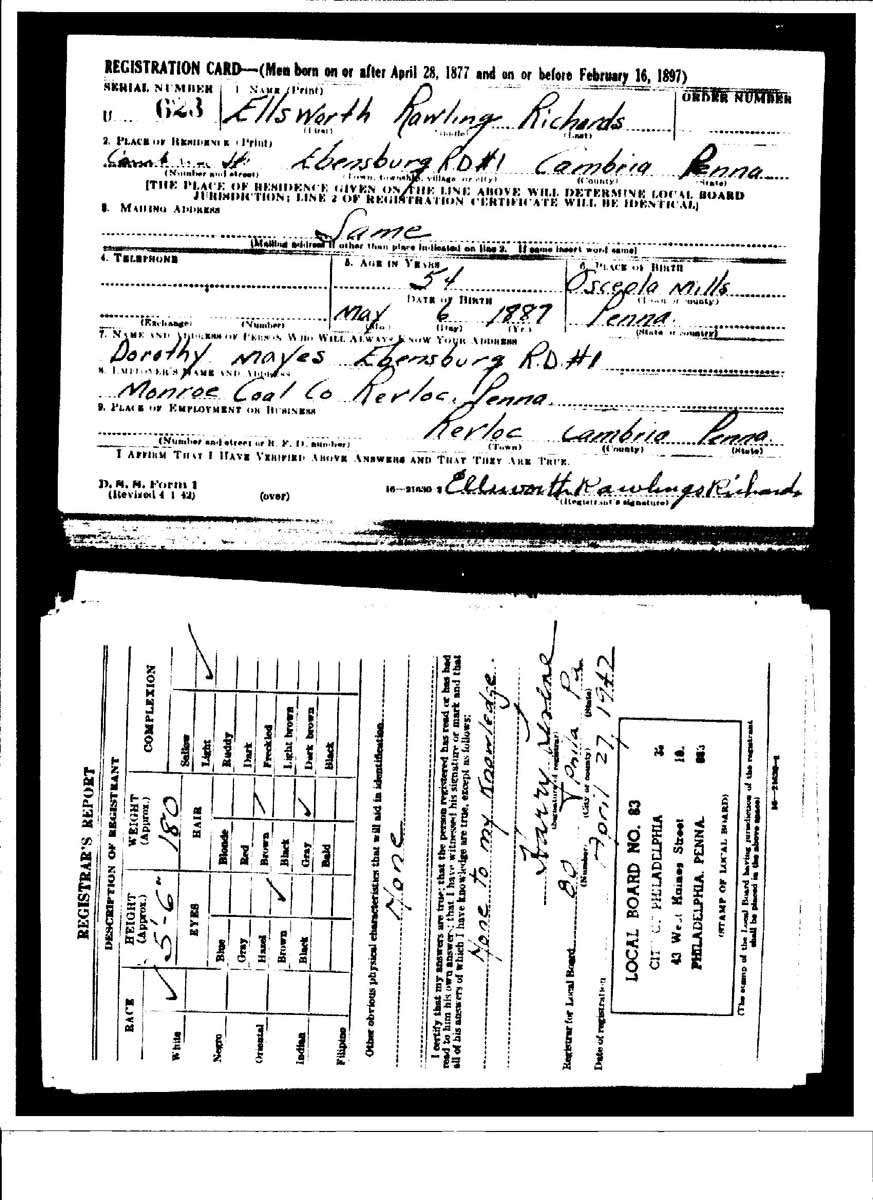 REGISTRATION CARD—(Men born on or after April 28, 1877 and on or before February 16, 1897)
SERIAL NUMBER 1. NAME (Print) ORDER NUMBER
U 623 Ellsworth Rawling Richards
(First) (Middle) (Last)
2. PLACE OF RESIDENCE (Print)
Ebensburg R.D #1 Cambria Penna
(Number and street) (Town, township, village, or city) (County) (State)
[THE PLACE OF RESIDENCE GIVEN ON THE LINE ABOVE WILL DETERMINE LOCAL BOARD
JURISDICTION; LINE 2 OF REGISTRATION CERTIFICATE WILL BE IDENTICAL]
3. MAILING ADDRESS
Same
[Mailing address if other than place indicated on line 2. If same insert word same]
4. TELEPHONE 5. AGE IN YEARS 6. PLACE OF BIRTH
54 Osceola Mills
DATE OF BIRTH (Town or county)
May 6 1887 Penna.
(Exchange) (Number) (Mo.) (Day) (Yr.) (State or country)
7. NAME AND ADDRESS OF PERSON WHO WILL ALWAYS KNOW YOUR ADDRESS
Dorothy Mayes Ebensburg R.D. #1
8. EMPLOYER'S NAME AND ADDRESS
Monroe Coal Co Revloc. Penna.
9. PLACE OF EMPLOYMENT OR BUSINESS
Revloc Cambria Penna.
(Number and street or R. F. D. number) (Town) (County) (State)
I AFFIRM THAT I HAVE VERIFIED ABOVE ANSWERS AND THAT THEY ARE TRUE.
D. S. S. Form 1
(Revised 4-1-42) (over) 16—21630-2 Ellsworth Rawlings Richards
(Registrant's signature)
REGISTRAR'S REPORT
DESCRIPTION OF REGISTRANT
RACE HEIGHT (Approx.) WEIGHT (Approx.) COMPLEXION
5'-6" 180
White ✓ EYES HAIR Sallow
Light ✓
Negro Blue Blonde Ruddy
Gray Red Dark
Oriental Hazel Brown ✓ Freckled
Brown ✓ Black Light brown
Indian Black Gray ✓ Dark brown
Filipino Bald Black
Other obvious physical characteristics that will aid in identification
None
I certify that my answers are true; that the person registered has read or has had
read to him his own answers; that I have witnessed his signature or mark and that
all of his answers of which I have knowledge are true, except as follows:
None to my Knowledge.
Harry
(Signature of registrar)
Registrar for Local Board 80 Phila Pa
(Number) (City or county) (State)
Date of registration April 27, 1942
LOCAL BOARD NO. 83
CITY OF PHILADELPHIA
43 West Haines Street
PHILADELPHIA, PENNA.
(STAMP OF LOCAL BOARD)
(The stamp of the Local Board having jurisdiction of the registrant
shall be placed in the above space)
16—21630-2